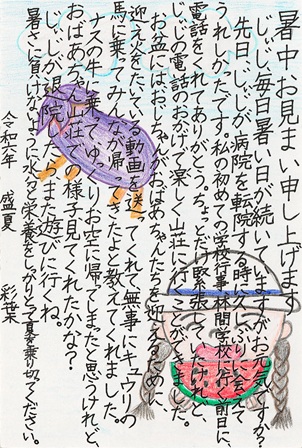 暑中お見まい申し上げます
じぃじ毎日暑い日が続いていますがお元気ですか。
先日、じぃじが病院を転院する時久しぶりに会えて
うれしかったです。私の初めての学校行事、林間学校に行く前日に、
電話をくれてありがとう。ちょっとだけ緊張していたけれど、
じぃじの電話のおかげで楽しく山荘に行くことができました。
お盆にはじぃじがおばあちゃんたちを迎えるために、
迎え火をたいている動画を送ってくれて無事にキュウリの
馬に乗てみんなが帰ってきたよと教えてくれました。
ナスの牛に乗ってゆっくりお空に帰てしまったと思うけれど、
おばあちゃん山荘での様子見てくれたかな?
じぃじが退院したらまた遊びに行くね。
暑さに負けないように水分と栄養をしっかりとって夏を乗り切ってください。
令和六年 盛夏 彩葉